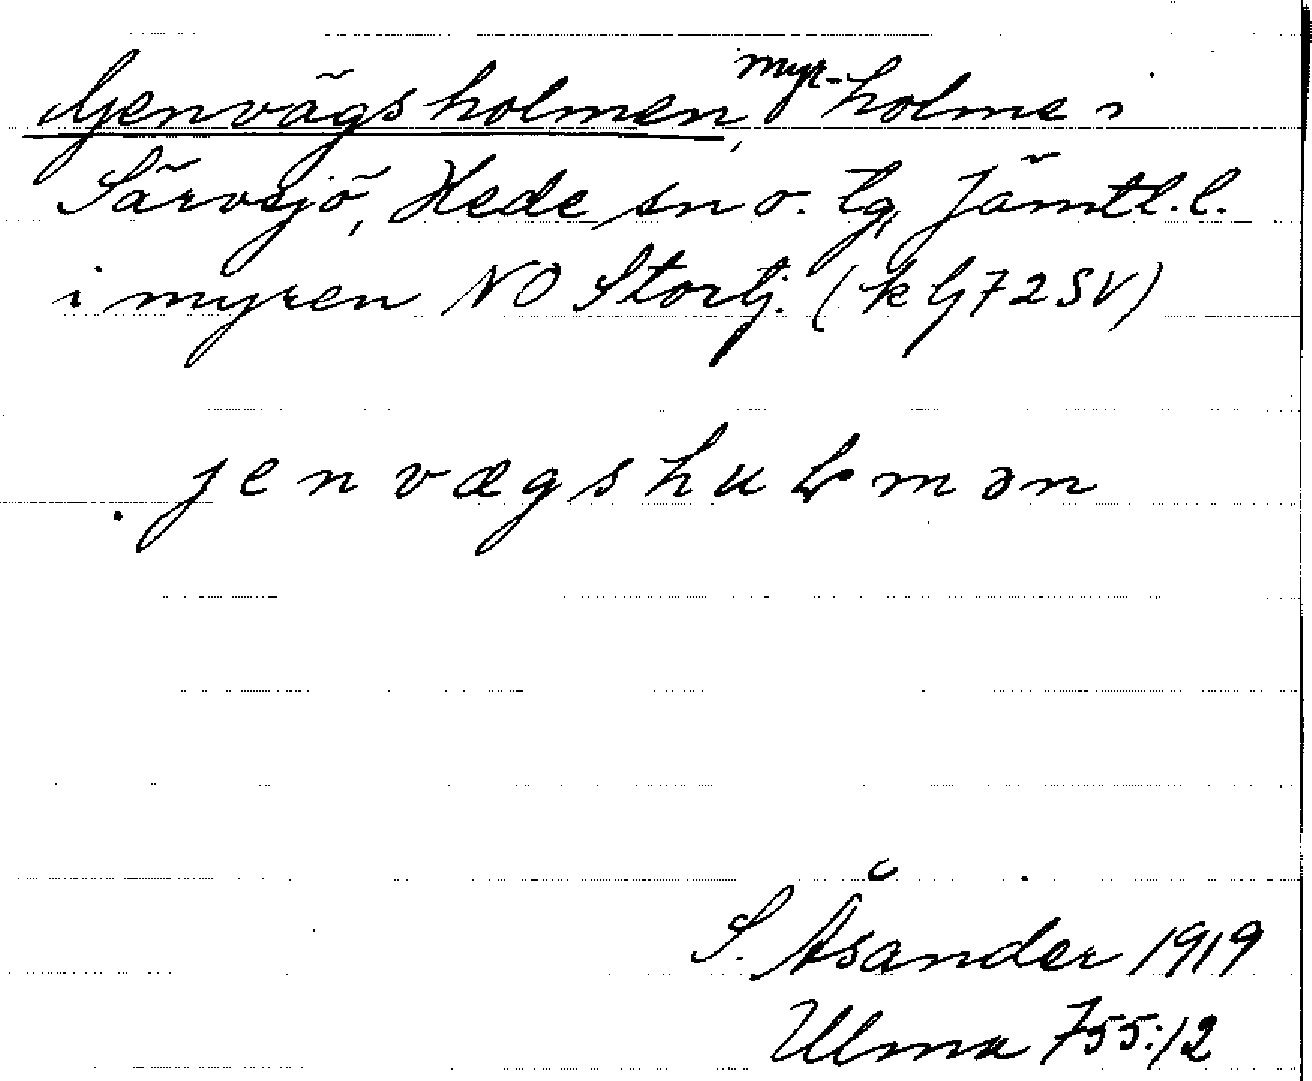 Genvägsholmen, myr-holme i
Särvsjö, Hede sn o. tg, Jämtl. l.
i myren NO Stortj. (k bj 72 SV)
jenvægshuɽmən
S. Åsander 1919
Ulma 755:12